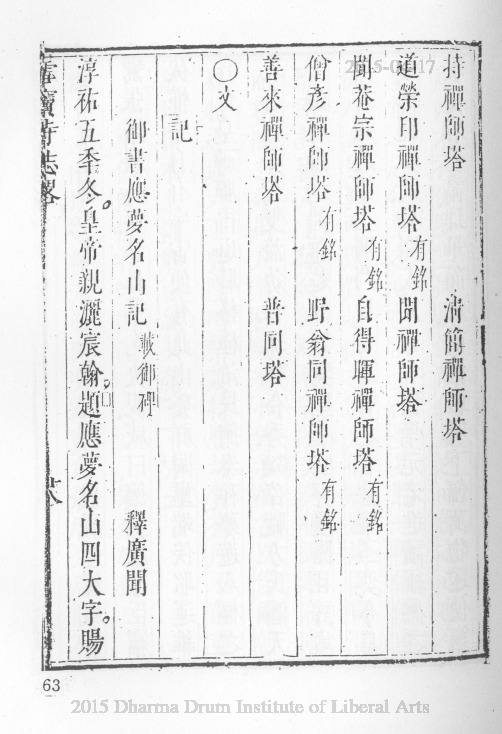 持禪師塔　清簡禪師塔
道榮印禪師塔有銘　聞禪師塔
聞菴宗禪師塔有銘　自得暉禪師塔有銘
僧彥禪師塔有銘　野翁同禪師塔有銘
善來禪師塔　普同塔
○文
記
御書應夢名山記載御碑　釋廣聞
淳祐五季冬。皇帝親灑宸翰。題應夢名山四大字。賜
雪竇寺志畧
63
2015 Dharma Drum Institute of Liberal Arts